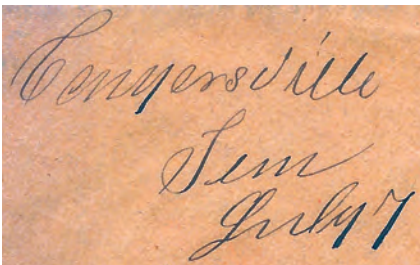 Conyersville
Tenn
July 7